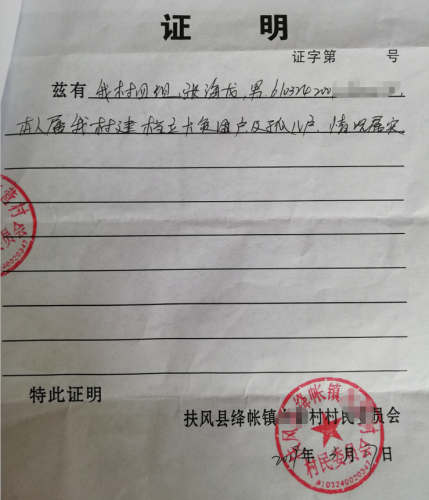 证 明
证字第 号
兹有 我村四组,张海龙,男,610324200
本人属我村建档立卡贫困户及孤儿户,情况属实
营村
员会
特此证明
扶风县绛帐镇 村村民委员会
年 月 日
扶风县绛帐镇 村
村民委员会
6103240020347